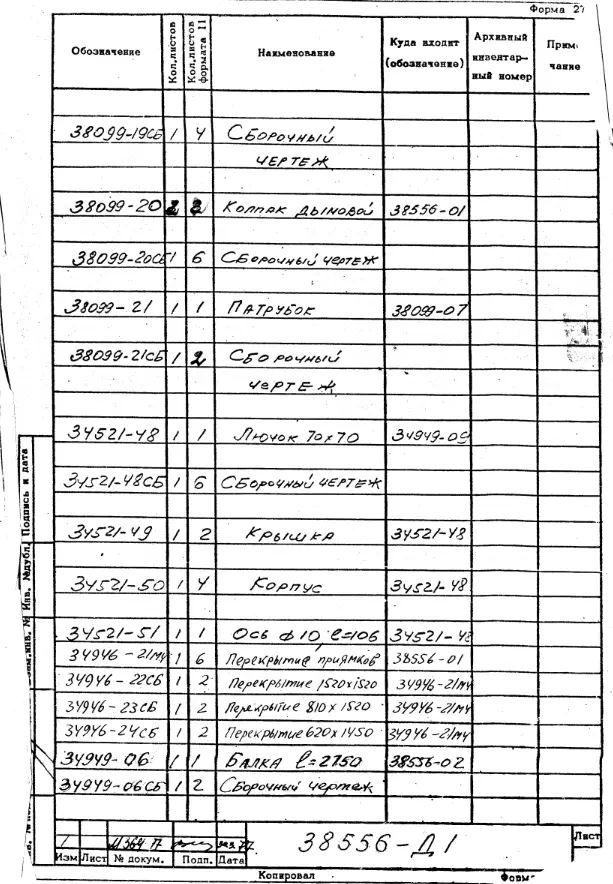 Форма 2
Обозначение Кол.листов Кол.листов формата 11 Наименование Куда входит (обозначение) Архивный инвентар- ный номер Прим чание
38099-19СБ 1 4 Сборочный
чертеж
38099-20 2 2 Колпак дымовой 38556-01
38099-20СБ 1 6 Сборочный чертеж
38099-21 1 1 Патрубок 38099-07
38099-21СБ 1 2 Сборочный
чертеж
34521-48 1 1 Лючок 70х70 34949-09
34521-48СБ 1 6 Сборочный чертеж
34521-49 1 2 Крышка 34521-48
34521-50 1 4 Корпус 34521-48
34521-51 1 1 Ось ф 10 ℓ=106 34521-48
34946-21МЧ 1 6 Перекрытие приямков 38556-01
34946-22СБ 1 2 Перекрытие 1520х1520 34946-21МЧ
34946-23СБ 1 2 Перекрытие 810х1520 34946-21МЧ
34946-24СБ 1 2 Перекрытие 620х1450 34946-21МЧ
34949-06 1 1 Балка ℓ=2750 38556-02
34949-06СБ 1 2 Сборочный чертеж
Инв. №дубл. Подпись и дата
1
Изм Лист № докум. Подп. Дата
38556-Д1
Лист
Копировал